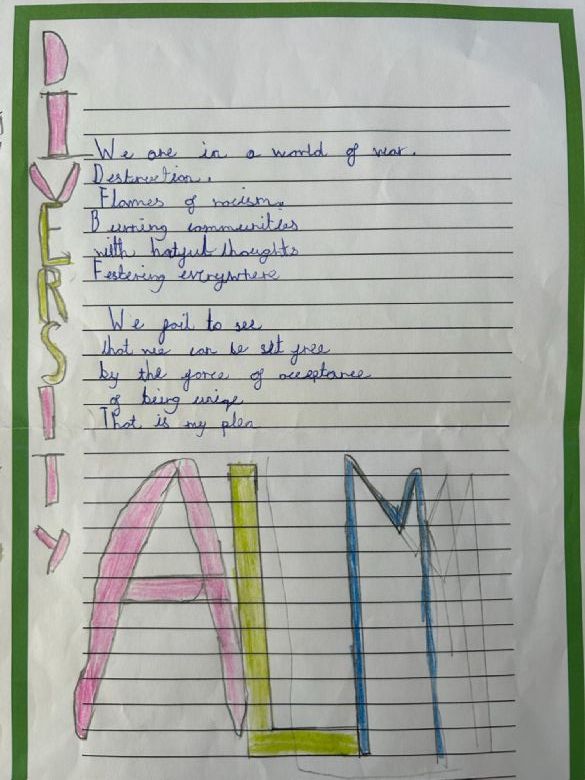 DIVERSITY
We are in a world of war.
Destruction.
Flames of racism.
Burning communities
with hatful thoughts
Festering everywhere
We fail to see
that we can be set free
by the force of acceptance
of being uniqe
That is my plea
ALM